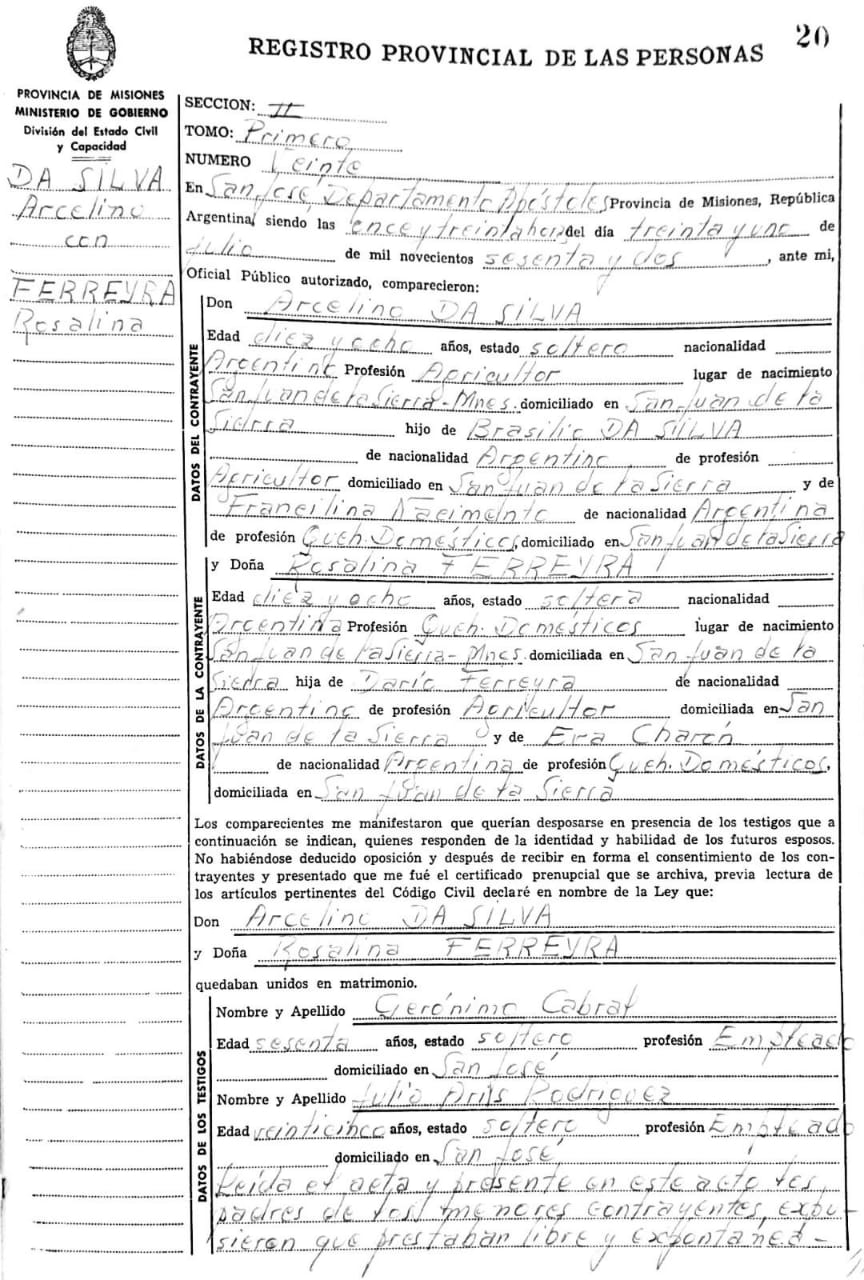 REGISTRO PROVINCIAL DE LAS PERSONAS
20
PROVINCIA DE MISIONES
MINISTERIO DE GOBIERNO
División del Estado Civil
y Capacidad
DA SILVA
Arcelino
con
FERREYRA
Rosalina
SECCION: II
TOMO: Primero
NUMERO Veinte
En San José, Departamento Apóstoles Provincia de Misiones, República
Argentina, siendo las once y treinta horas del día treinta y uno de
Julio de mil novecientos sesenta y dos, ante mi,
Oficial Público autorizado, comparecieron:
DATOS DEL CONTRAYENTE
Don Arcelino DA SILVA
Edad diez y ocho años, estado soltero nacionalidad
Argentino Profesión Agricultor lugar de nacimiento
San Juan de la Sierra-Mnes. domiciliado en San Juan de la
Sierra hijo de Brasilio DA SILVA
de nacionalidad Argentino de profesión
Agricultor domiciliado en San Juan de la Sierra y de
Francilina Nacimento de nacionalidad Argentina
de profesión Queh. Domésticos, domiciliado en San Juan de la Sierra
DATOS DE LA CONTRAYENTE
y Doña Rosalina FERREYRA
Edad diez y ocho años, estado soltera nacionalidad
Argentina Profesión Queh. Domésticos lugar de nacimiento
San Juan de la Sierra-Mnes. domiciliada en San Juan de la
Sierra hija de Darío Ferreyra de nacionalidad
Argentino de profesión Agricultor domiciliada en San
Juan de la Sierra y de Eva Charón
de nacionalidad Argentina de profesión Queh. Domésticos,
domiciliada en San Juan de la Sierra
Los comparecientes me manifestaron que querían desposarse en presencia de los testigos que a
continuación se indican, quienes responden de la identidad y habilidad de los futuros esposos.
No habiéndose deducido oposición y después de recibir en forma el consentimiento de los con-
trayentes y presentado que me fué el certificado prenupcial que se archiva, previa lectura de
los artículos pertinentes del Código Civil declaré en nombre de la Ley que:
Don Arcelino DA SILVA
y Doña Rosalina FERREYRA
quedaban unidos en matrimonio.
DATOS DE LOS TESTIGOS
Nombre y Apellido Gerónimo Cabral
Edad sesenta años, estado soltero profesión Empleado
domiciliado en San José
Nombre y Apellido Julio Rodriguez
Edad veinticinco años, estado soltero profesión Empleado
domiciliado en San José
Leída el acta y presente en este acto los
padres de los menores contrayentes, expu-
sieron que prestaban libre y expontánea-